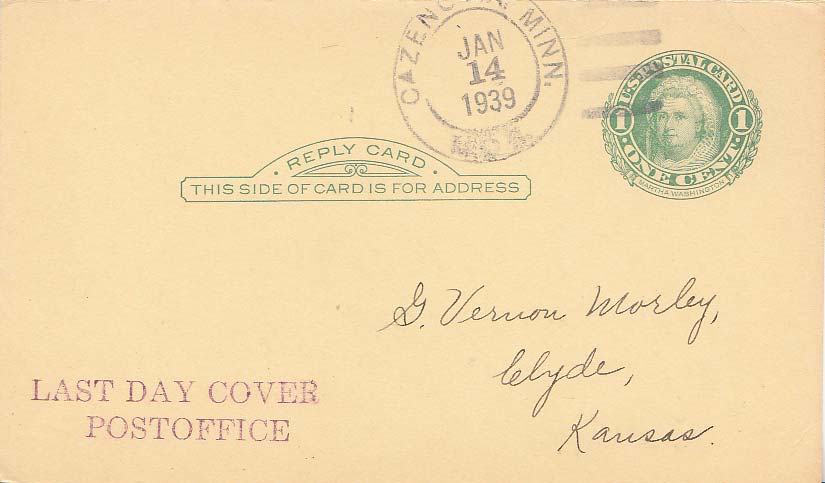 CAZENOVIA, MINN.
JAN
14
1939
U.S. POSTAL CARD
1 1
ONE CENT
MARTHA WASHINGTON
REPLY CARD
THIS SIDE OF CARD IS FOR ADDRESS
G. Vernon Morley,
Clyde,
Kansas.
LAST DAY COVER
POSTOFFICE